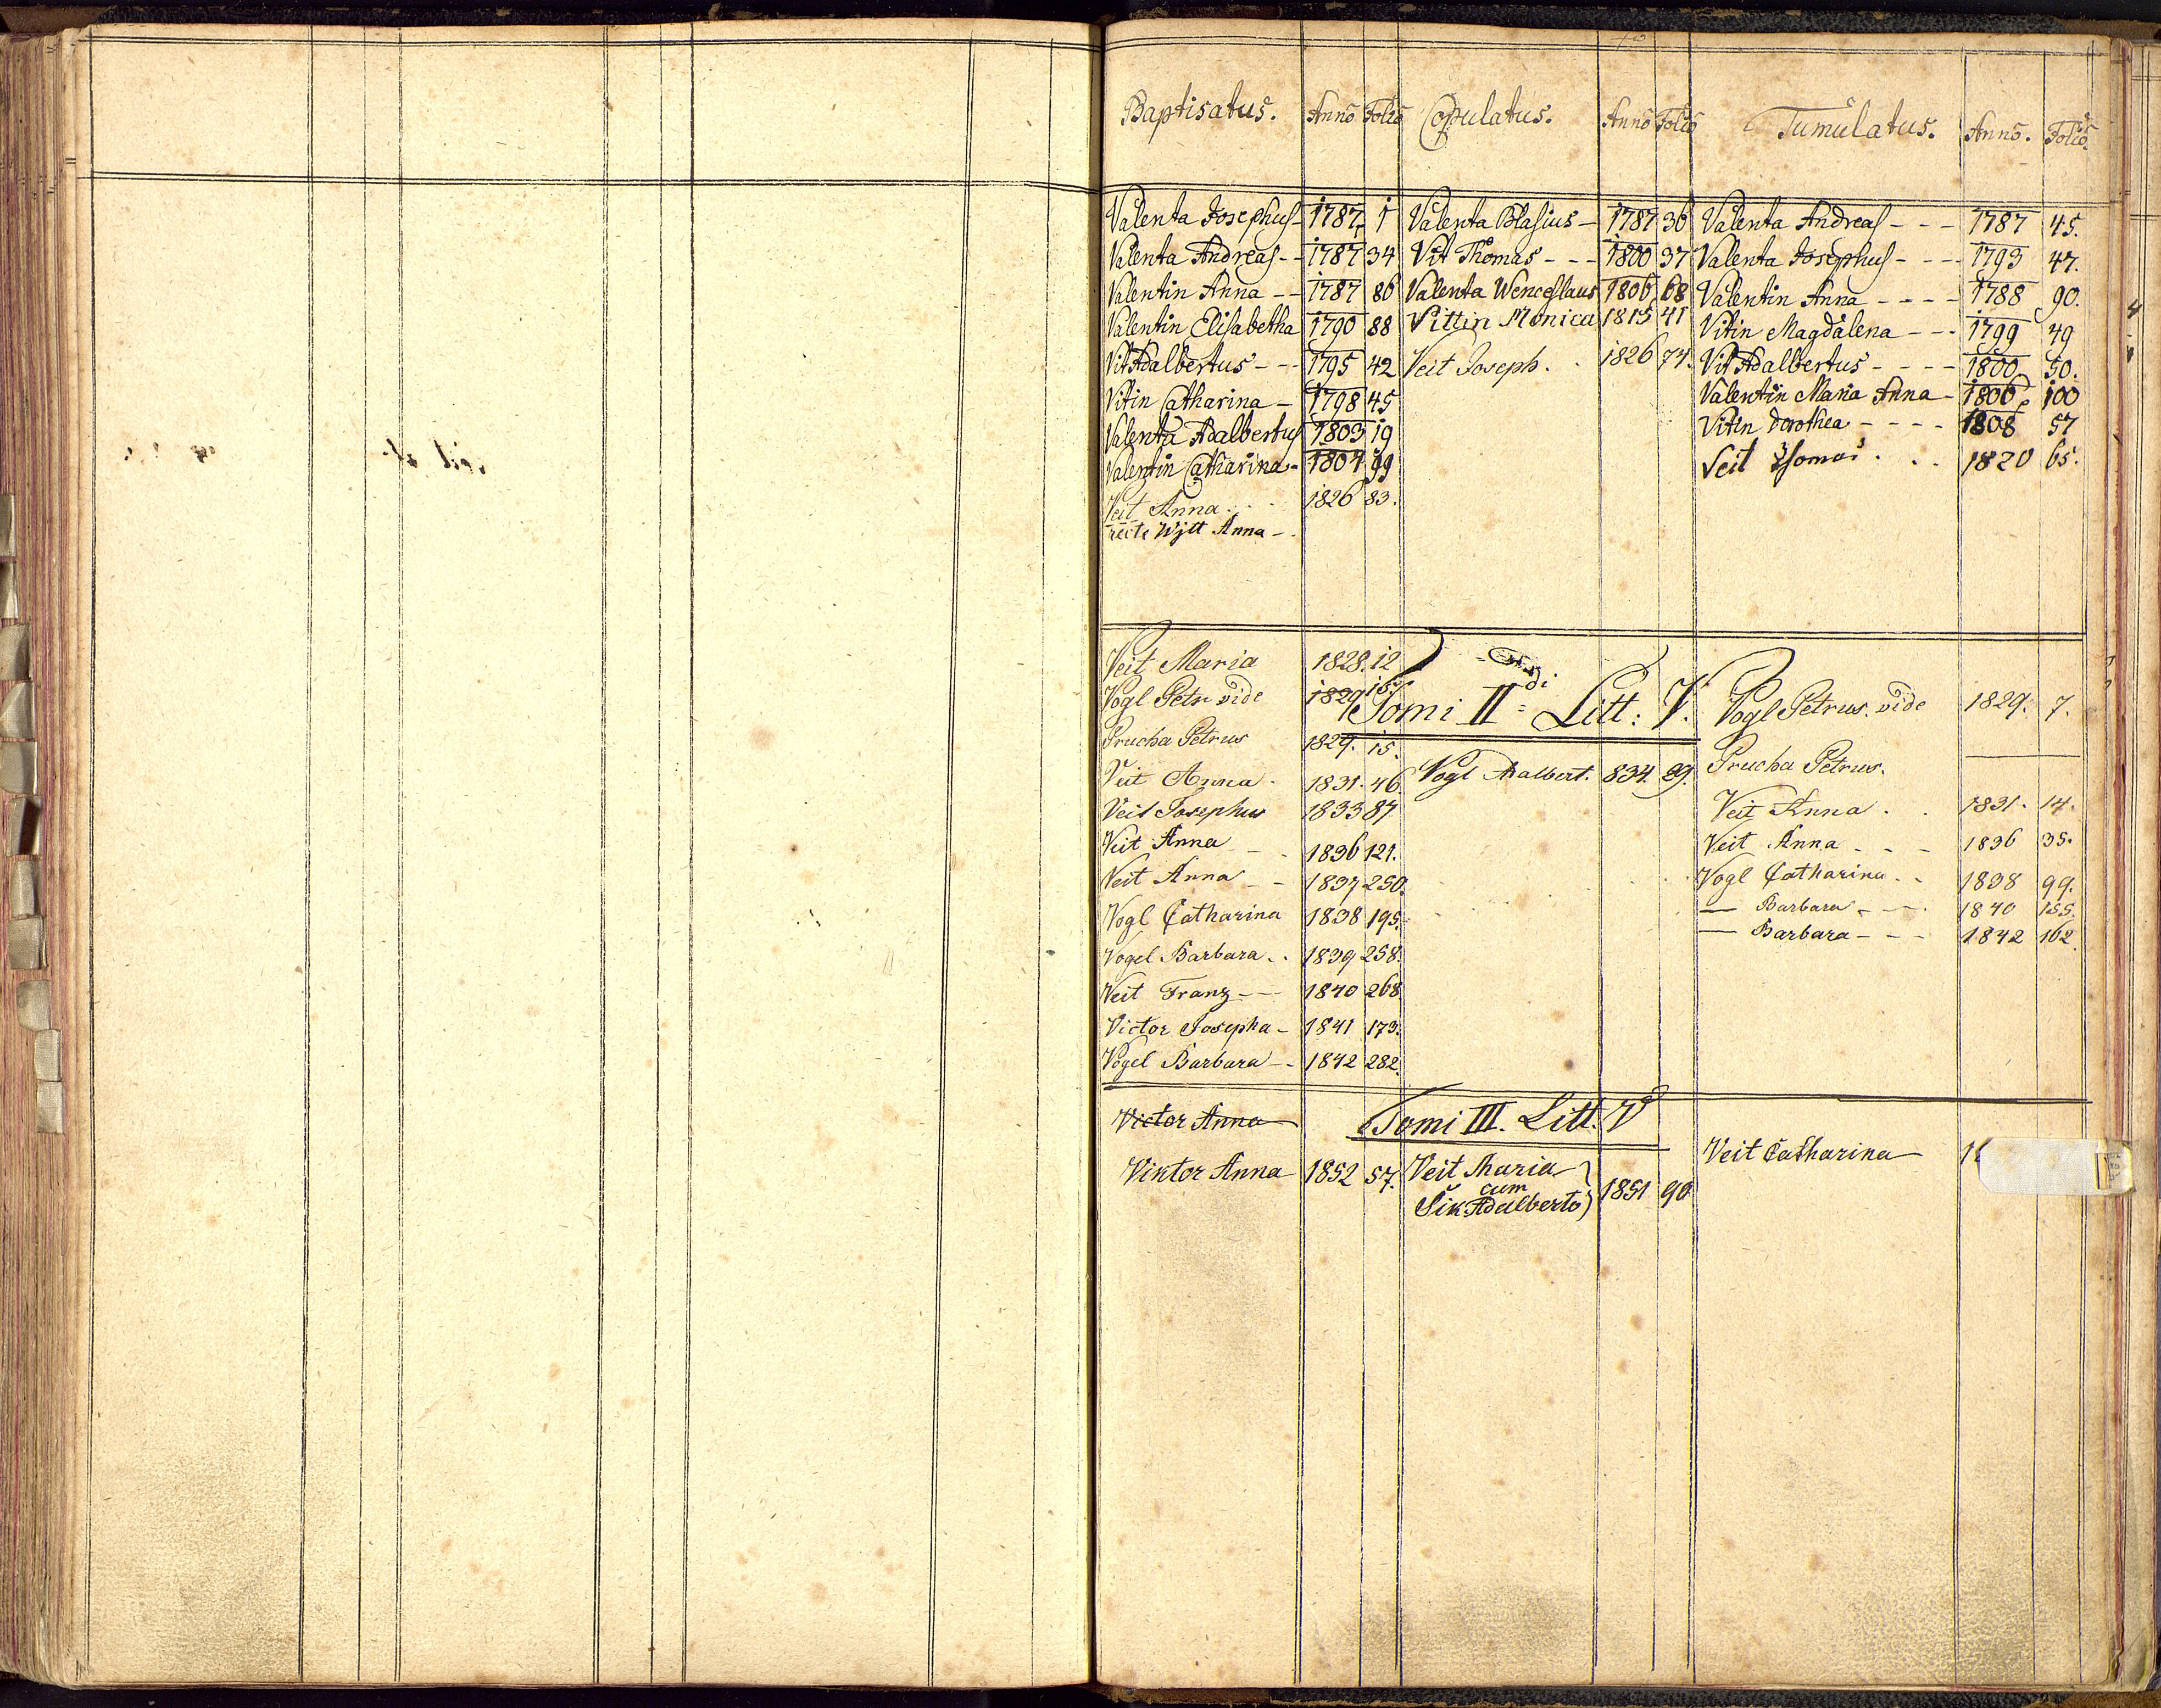 Baptisatus. Anno Folio Copulatus. Anno Folio Tumulatus. Anno. Folio.
Valenta Josephus - 1787 1 Valenta Blasius - 1787 36 Valenta Andreas - - - 1787 45.
Valenta Andreas - - 1787 34 Vit Thomas - - - 1800 37 Valenta Josephus - - - 1793 47.
Valentin Anna - - 1787 86 Valenta Wenceslaus 1806 68 Valentin Anna - - - - 1788 90.
Valentin Elisabetha 1790 88 Vittin Monica 1815 41 Vitin Magdalena - - - 1799 49
Vit Adalbertus - - - 1795 42 Veit Joseph. 1826 74. Vit Adalbertus - - - - 1800 50.
Vitin Catharina - 1798 45 Valentin Maria Anna - 1806 100
Valenta Adalbertus 1803 19 Vitin Dorothea - - - - 1808 57
Valentin Catharina - 1807 99 Veit Thomas . . . 1820 65.
Veit Anna . . . 1826 83.
recte Wjtt Anna - .
Tomi II di Litt: V.
Veit Maria 1828. 12
Vogl Petr vide 1829 15. Vogl Petrus. vide 1829. 7.
Prucha Petrus 1829. 15. Prucha Petrus.
Veit Anna . 1831. 46. Vogl Adalbert. 834. 29. Veit Anna . . 1831. 14.
Veit Josephus 1833 87
Veit Anna - . 1836 121. Veit Anna - - - 1836 35.
Veit Anna - - 1837 250. Vogl Catharina . . 1838 99.
Vogl Catharina 1838 195. — Barbara - - . 1840 155.
Vogel Barbara . . 1839 258. — Barbara - - - 1842 162
Veit Franz - - 1840 268
Victor Josepha - 1841 173.
Vogel Barbara - - 1842 282.
Victor Anna Tomi III. Litt. V
Viktor Anna 1852 57. Veit Maria Veit Catharina
cum 1851 90
Šik Adalberto